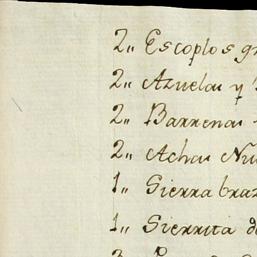 2,, Escoplos
2,, Azuelas y
2,, Barrenas
2,, Achas
1,, Sierra
1,, Sierrita